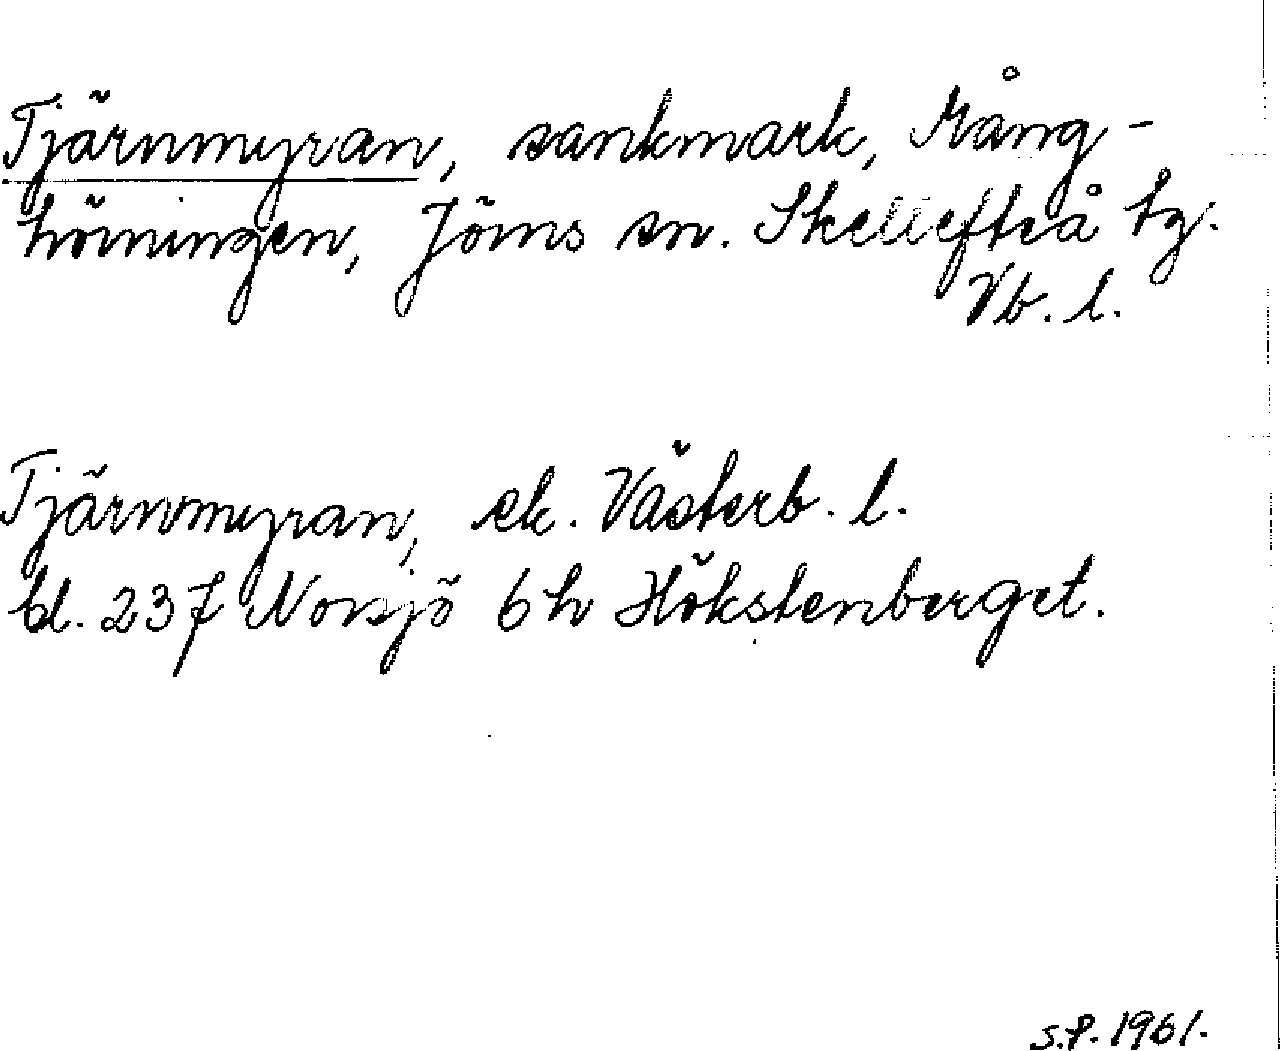 Tjärnmyran, sankmark, Mång-
hörningen, Jörns sn. Skellefteå tg.
Vb. l.
Tjärnmyran, ek. Västerb. l.
bl. 237 Norsjö 6h Hökstenberget.
S.P. 1961.